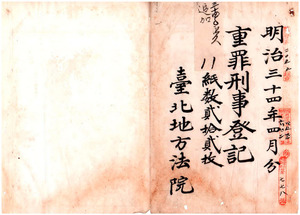 明治三十四年四月分
重罪刑事登記
紙数貳拾貳枚
臺北地方法院
追加